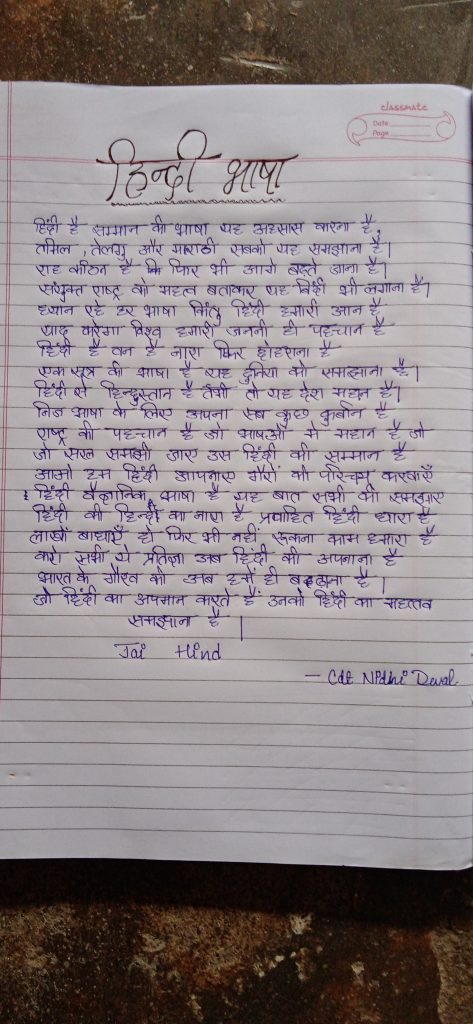 classmate
Date
Page
हिन्दी भाषा
हिंदी है सम्मान की भाषा यह अहसास करना है,
तमिल, तेलगु और माराठी सबको यह समझाना है।
राह कठिन है कि फिर भी आगे बढ़ते जाना है।
संयुक्त राष्ट्र को महत्व बताकर यह बिंदी भी लगाना है।
ध्यान रहे हर भाषा किंतु हिंदी हमारी आन है
याद करेगा विश्व हमारी जननी ही पहचान है
हिंदी है वतन है नारा फिर दोहराना है
एक सूत्र की भाषा है यह दुनिया को समझाना है।
हिंदी से हिन्दुस्तान है तभी तो यह देश महान है।
निज भाषा के लिए अपना सब कुछ कुर्बान है
राष्ट्र की पहचान है जो भाषाओं में महान है जो
जो सरल समझी जाए उस हिंदी को सम्मान है
आओ हम हिंदी अपनाए गैरों को परिचय करवाएँ
हिंदी वैज्ञानिक भाषा है यह बात सभी को समझाए
हिंदी की हिन्दी का नारा है प्रवाहित हिंदी धारा है
लाखों बाधाएँ हो फिर भी नहीं रूकना काम हमारा है
करो सभी ये प्रतिज्ञा अब हिंदी को अपनाना है
भारत के गौरव को अब हमें ही बढ़ाना है।
जो हिंदी का अपमान करते हैं उनको हिंदी का महत्तव
समझाना है।
Jai Hind
— Cdt Nidhi Dewal